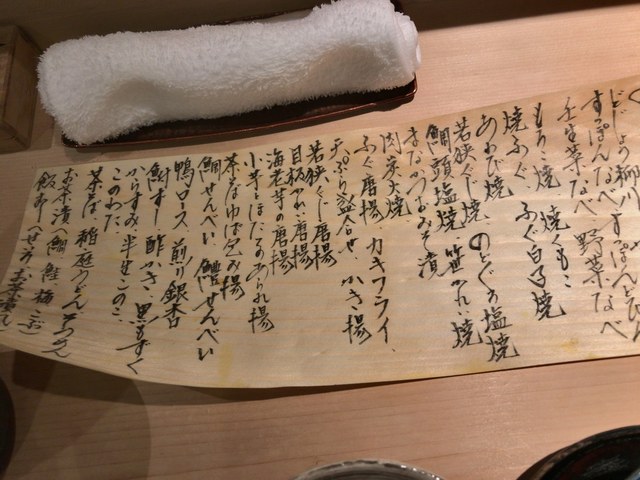 どじょう柳川
すっぽんなべ すっぽんどびん
壬生菜なべ 野菜なべ
もろこ焼 焼くもこ
焼ふぐ、ふぐ白子焼
あわび焼 のどぐろ塩焼
若狭ぐじ焼 笹かれい焼
鯛頭塩焼
まながつおみそ漬
肉炭火焼
ふぐ唐揚 カキフライ、
天ぷら盛合せ、かき揚
若狭ぐじ唐揚
目板かれい唐揚
海老芋の唐揚
小芋とほたてのあられ揚
茶なゆば包み揚
鯛せんべい 鱧せんべい
鴨ロス 煎り銀杏
鮒すし、酢かき、黒もずく
からすみ、半生このこ、
このわた
茶そば、稲庭うどん
お茶漬(鯛 鮭 梅 こぶ)